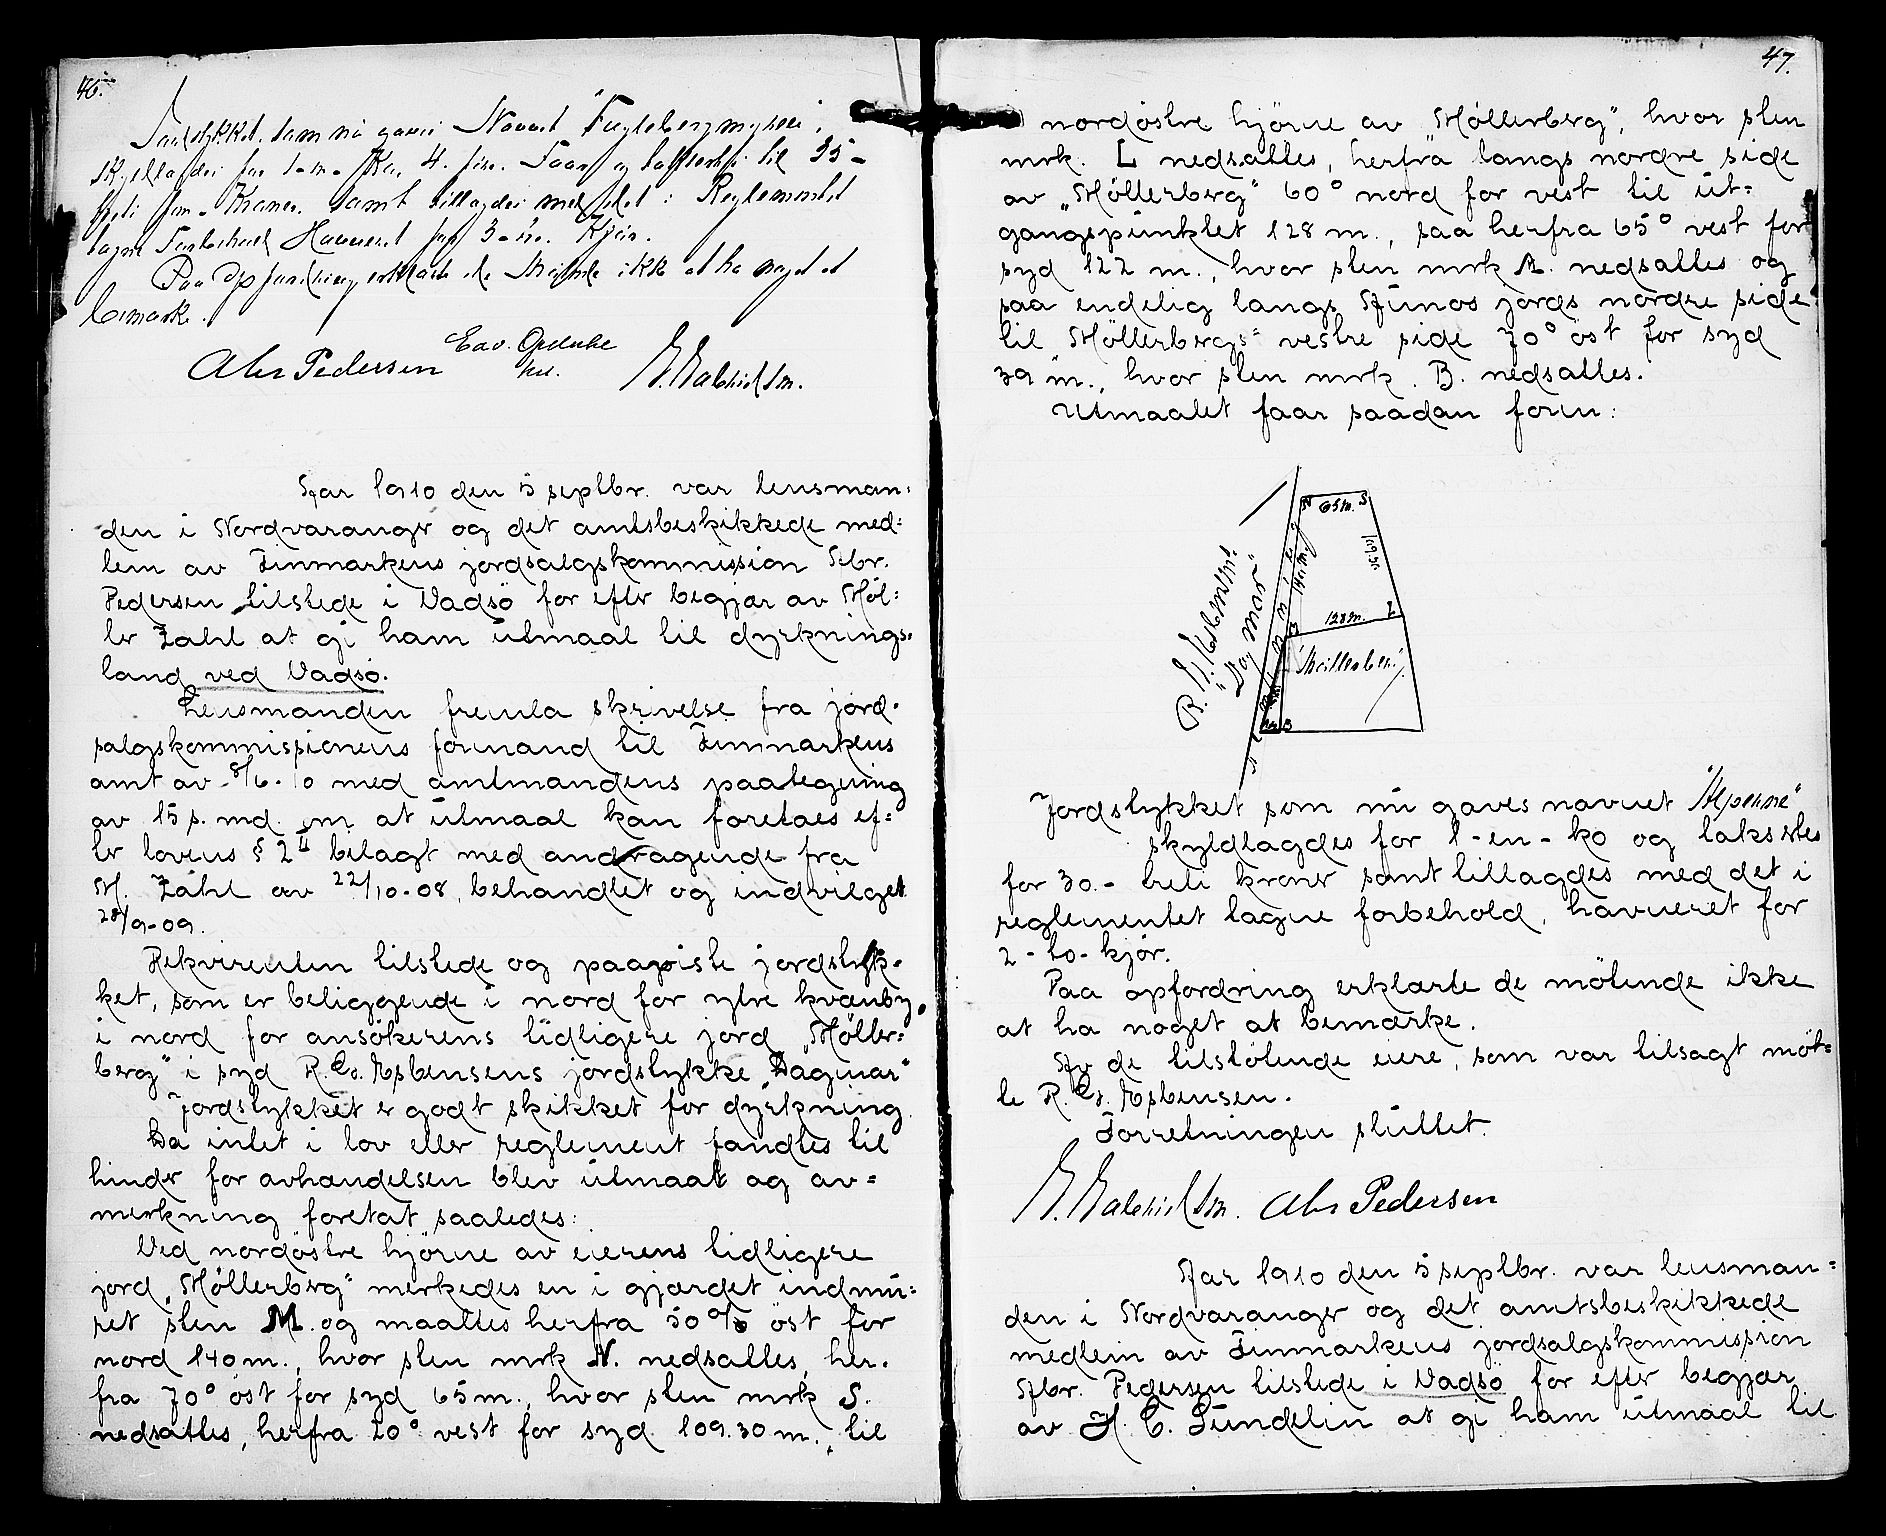 46.
Jordstykket som nu gaves Navnet "Fuglebergmyren",
skyldlagdes for 1-en-Ko, 4-fire-Faar og taksertes til 35-
fem- Kroner samt tillagdes med det i Reglementet
tagne Forbehold Havneret for 3-tre-Kjør.
Paa Opfordring erklærte de Mødende ikke at ha noget at
bemærke.
Abr Pedersen
Aar 1910 den 5 septbr. var lensman-
den i Nordvaranger og det amtsbeskikkede med-
lem av Finmarkens jordsalgskommission Abr.
Pedersen tilstede i Vadsö for efter begjær av Møl-
ler Zahl at gi ham utmaal til dyrknings-
land ved Vadsö.
Lensmanden fremla skrivelse fra jord-
salgskommissionens formand til Finmarkens
amt av 8/6-10 med amtmandens paategning
av 15 s. md. om at utmaal kan foretaes ef-
ter lovens § 2 belagt med andragende fra
M. Zahl av 22/10-08, behandlet og indvilget
28/9-09.
Rekvirenten tilstede og paaviste jordstyk-
ket, som er beliggende i nord for ytre kvænby,
i nord for ansökerens tidligere jord "Møller-
berg" i syd R. Esbensens jordstykke "Dagmar"
Jordstykket er godt skikket for dyrkning.
Da intet i lov eller reglement fandtes til
hinder for avhændelsen blev utmaal og av-
merkning foretat saaledes:
Ved nordöstre hjörne av eierens tidligere
jord "Møllerberg" merkedes en i gjærdet indmu-
ret sten M. og maaltes herfra 50° öst for
nord 140 m., hvor sten mrk N. nedsattes, her-
fra 70° öst for syd 65 m., hvor sten mrk S.
nedsattes, herfra 20° vest for syd 109.30 m., til
47.
nordöstre hjörne av "Møllerberg", hvor sten
mrk. L nedsattes, herfra langs nordre side
av "Møllerberg" 60° nord for vest til ut-
gangspunktet 128 m., saa herfra 65° vest for
syd 122 m., hvor sten mrk A. nedsattes og
saa endelig langs Stunos jords nordre side
til Møllerbergs vestre side 70° öst for syd
39 m., hvor sten mrk. B. nedsattes.
Utmaalet faar saadan form:
N 65 m. S
140 m.
109.30
128 m. L
M
"Møllerberg"
B
R. Esbensens
"Dagmar"
Jordstykket som nu gaves navnet "Alpene"
skyldlagdes for 1-en-ko og takstes
for 30.- treti kroner samt tillagdes med det i
reglementet tagne forbehold, havneret for
2-to-kjör.
Paa opfordring erklærte de mötende ikke
at ha noget at bemærke.
Av de tilstötende eiere, som var tilsagt möt-
te R. Esbensen.
Forretningen sluttet.
Abr Pedersen
Aar 1910 den 5 septbr. var lensman-
den i Nordvaranger og det amtsbeskikkede
medlem av Finmarkens jordsalgskommission
Abr. Pedersen tilstede i Vadsö for efter begjær
av H. C. Sundelin at gi ham utmaal til